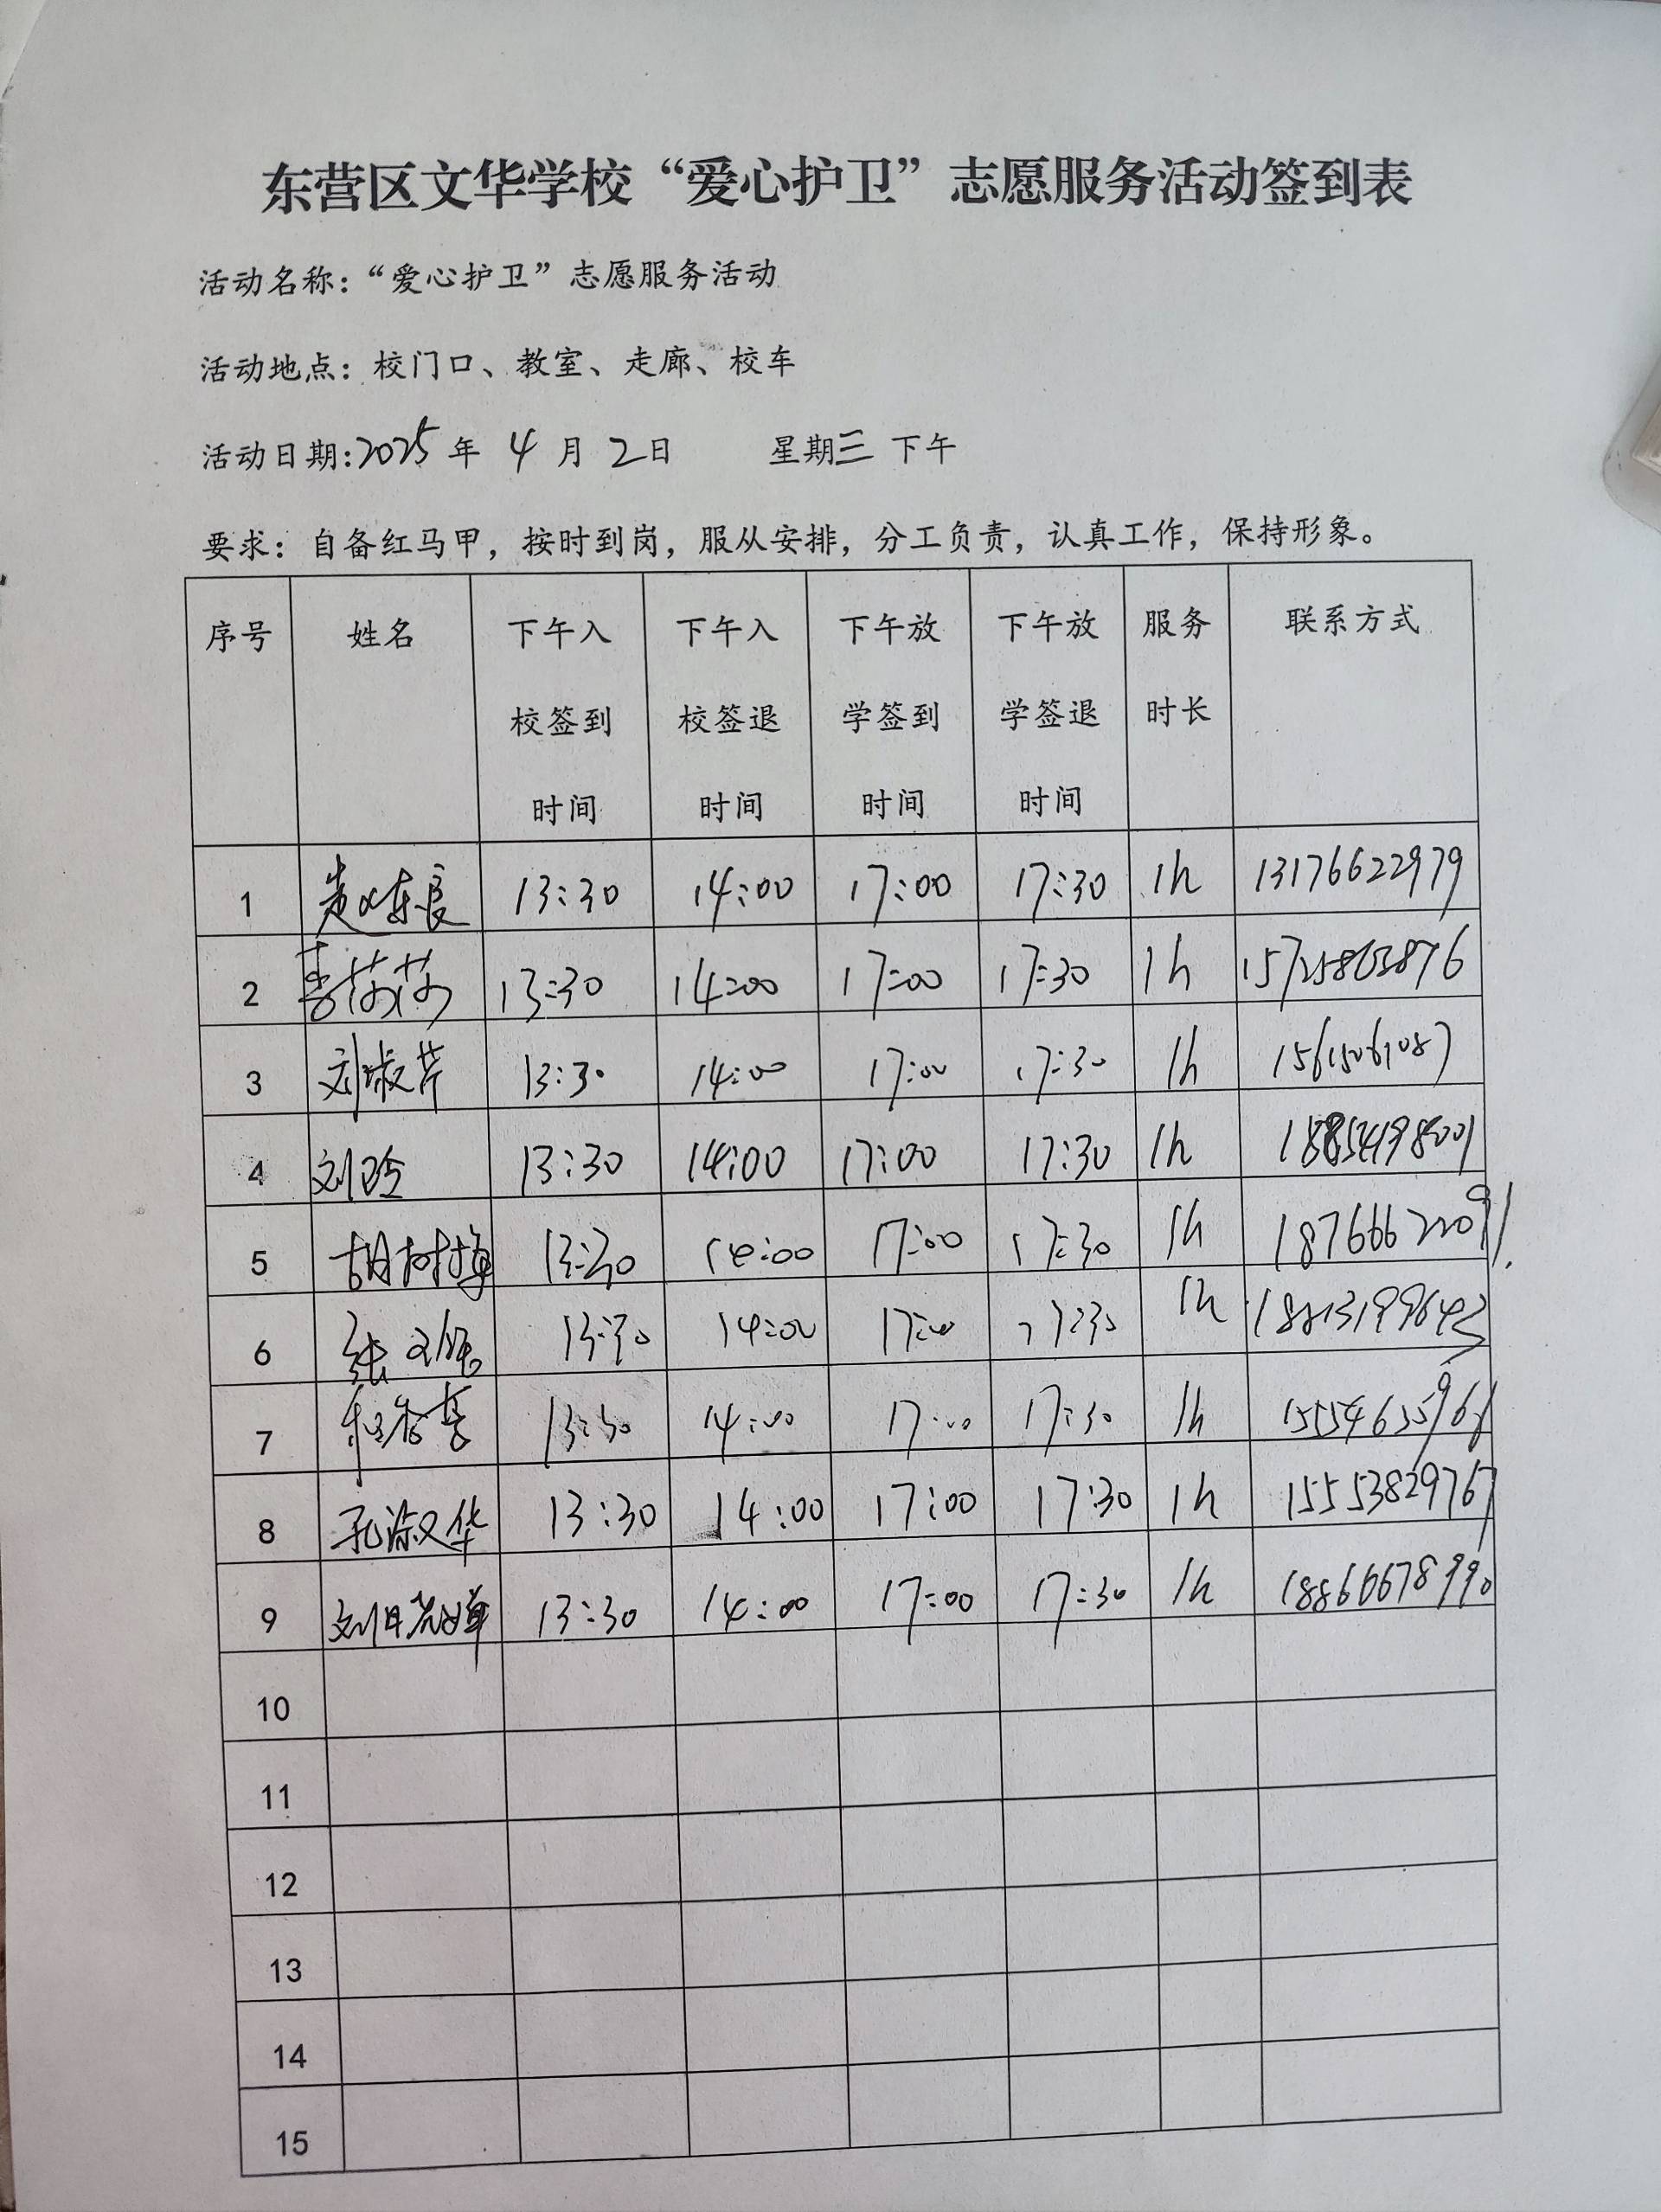 东营区文华学校“爱心护卫”志愿服务活动签到表
活动名称：“爱心护卫”志愿服务活动
活动地点：校门口、教室、走廊、校车
活动日期:2025年 4月 2日 星期三 下午
要求：自备红马甲，按时到岗，服从安排，分工负责，认真工作，保持形象。
序号 姓名 下午入校签到时间 下午入校签退时间 下午放学签到时间 下午放学签退时间 服务时长 联系方式
1 13:30 14:00 17:00 17:30 1h 13176622979
2 李莎莎 13:30 14:00 17:00 17:30 1h
3 刘淑芹 13:30 14:00 17:00 17:30 1h
4 刘玲 13:30 14:00 17:00 17:30 1h 18854198001
5 胡树梅 13:30 14:00 17:00 17:30 1h 18766622091
6 13:30 14:00 17:00 17:30 1h
7 程春喜 13:30 14:00 17:00 17:30 1h
8 孔淑华 13:30 14:00 17:00 17:30 1h 15553829767
9 13:30 14:00 17:00 17:30 1h 18866678990
10
11
12
13
14
15